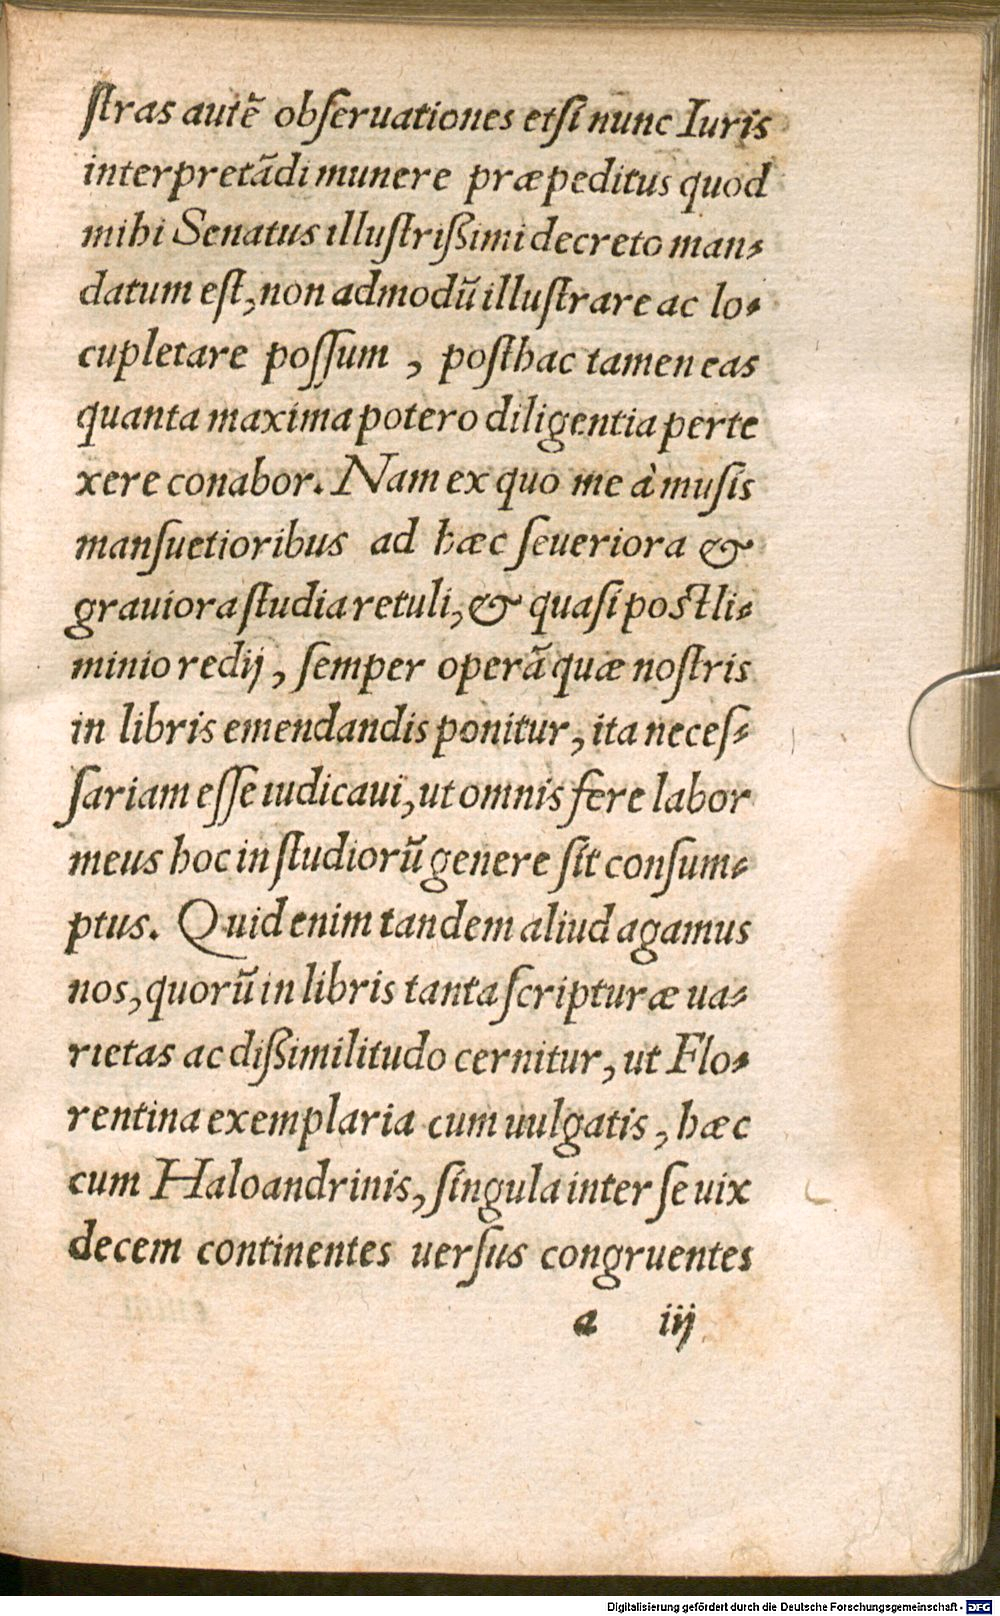 ſtras autẽ obſeruationes etſi nunc Iuris
interpretãdi munere præpeditus quod
mihi Senatus illuſtrißimi decreto man-
datum eſt, non admodũ illuſtrare ac lo-
cupletare poſſum , poſthac tamen eas
quanta maxima potero diligentia perte
xere conabor. Nam ex quo me à muſis
manſuetioribus ad hæc ſeueriora &
grauiora ſtudia retuli, & quaſi postli-
minio redij , ſemper operã quæ noſtris
in libris emendandis ponitur, ita neceſ-
ſariam eſſe iudicaui, ut omnis fere labor
meus hoc in ſtudiorũ genere ſit conſum-
ptus. Quid enim tandem aliud agamus
nos, quorũ in libris tanta ſcripturæ ua-
rietas ac dißimilitudo cernitur, ut Flo-
rentina exemplaria cum uulgatis, hæc
cum Haloandrinis, ſingula inter ſe uix
decem continentes uerſus congruentes
a iij
Digitalisierung gefördert durch die Deutsche Forschungsgemeinschaft - DFG